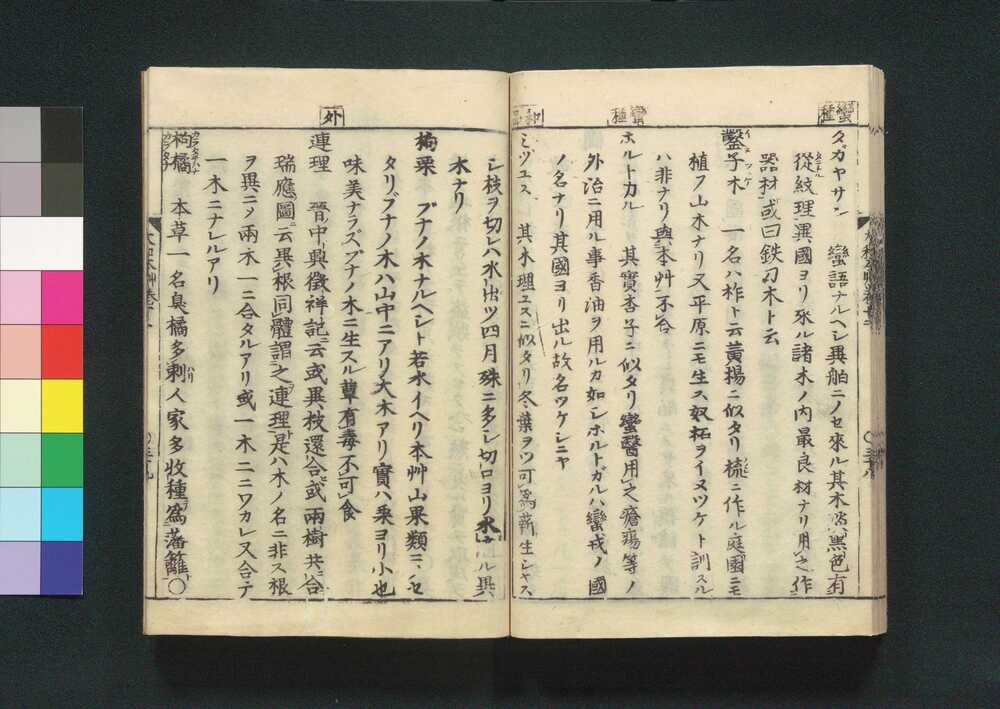 蛮種
タガヤサン 蠻語ナルヘシ異舶ニノセ來ル其木 黒色有
從紋理異國ヨリ來ル諸木ノ内最良材ナリ用之作
器材或曰鉄刀木ト云
鑿子木 一名ハ柞ト云黄楊ニ似タリ梳ニ作ル庭園ニモ
イヌツケ
植フ山木ナリ又平原ニモ生ス奴柘ヲイヌツケト訓スル
ハ非ナリ與本艸不合
蛮種
ホルトカル 其實杏子ニ似タリ蠻醫用之瘡瘍等ノ
外治ニ用ル事香油ヲ用ルカ如シホルトガルハ蠻戎ノ國
ノ名ナリ其國ヨリ出ル故名ツケシニヤ
和品
ミヅユス 其木理ユスニ似タリ冬葉ヲツ可為薪生シヤス
シ枝ヲ切レハ水出ツ四月殊ニ多シ切口ヨリ水 ル異
木ナリ
外
栭栗 ブナノ木ナルヘシト若水イヘリ本艸山果類ニノセ
タリブナノ木ハ山中ニアリ大木アリ實ハ栗ヨリ小也
味美ナラズブナノ木ニ生スル蕈有毒不可食
連理 晉中興徴祥記云或異枝還合或兩樹共合
瑞應圖云異根同體謂之連理是ハ木ノ名ニ非ス根
ヲ異ニメ兩木一ニ合タルアリ或一木ニニワカレ又合テ
一木ニナレルアリ
枸橘 本草一名臭橘多刺人家多收種為藩籬○
カラタチ
ハリ